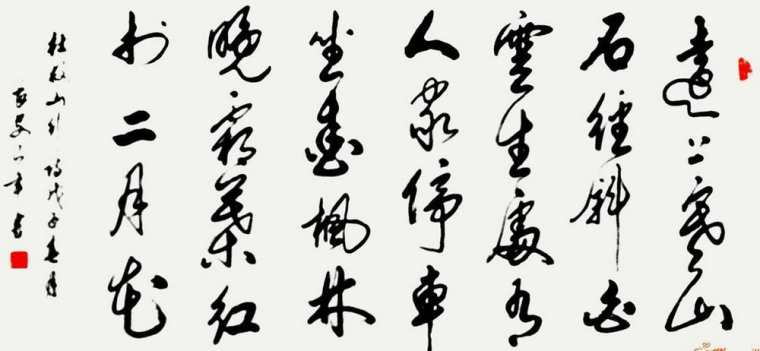 遠上寒山
石徑斜白
雲生處有
人家停車
坐愛楓林
晚霜葉紅
於二月花
杜牧山行 戊子春月
書